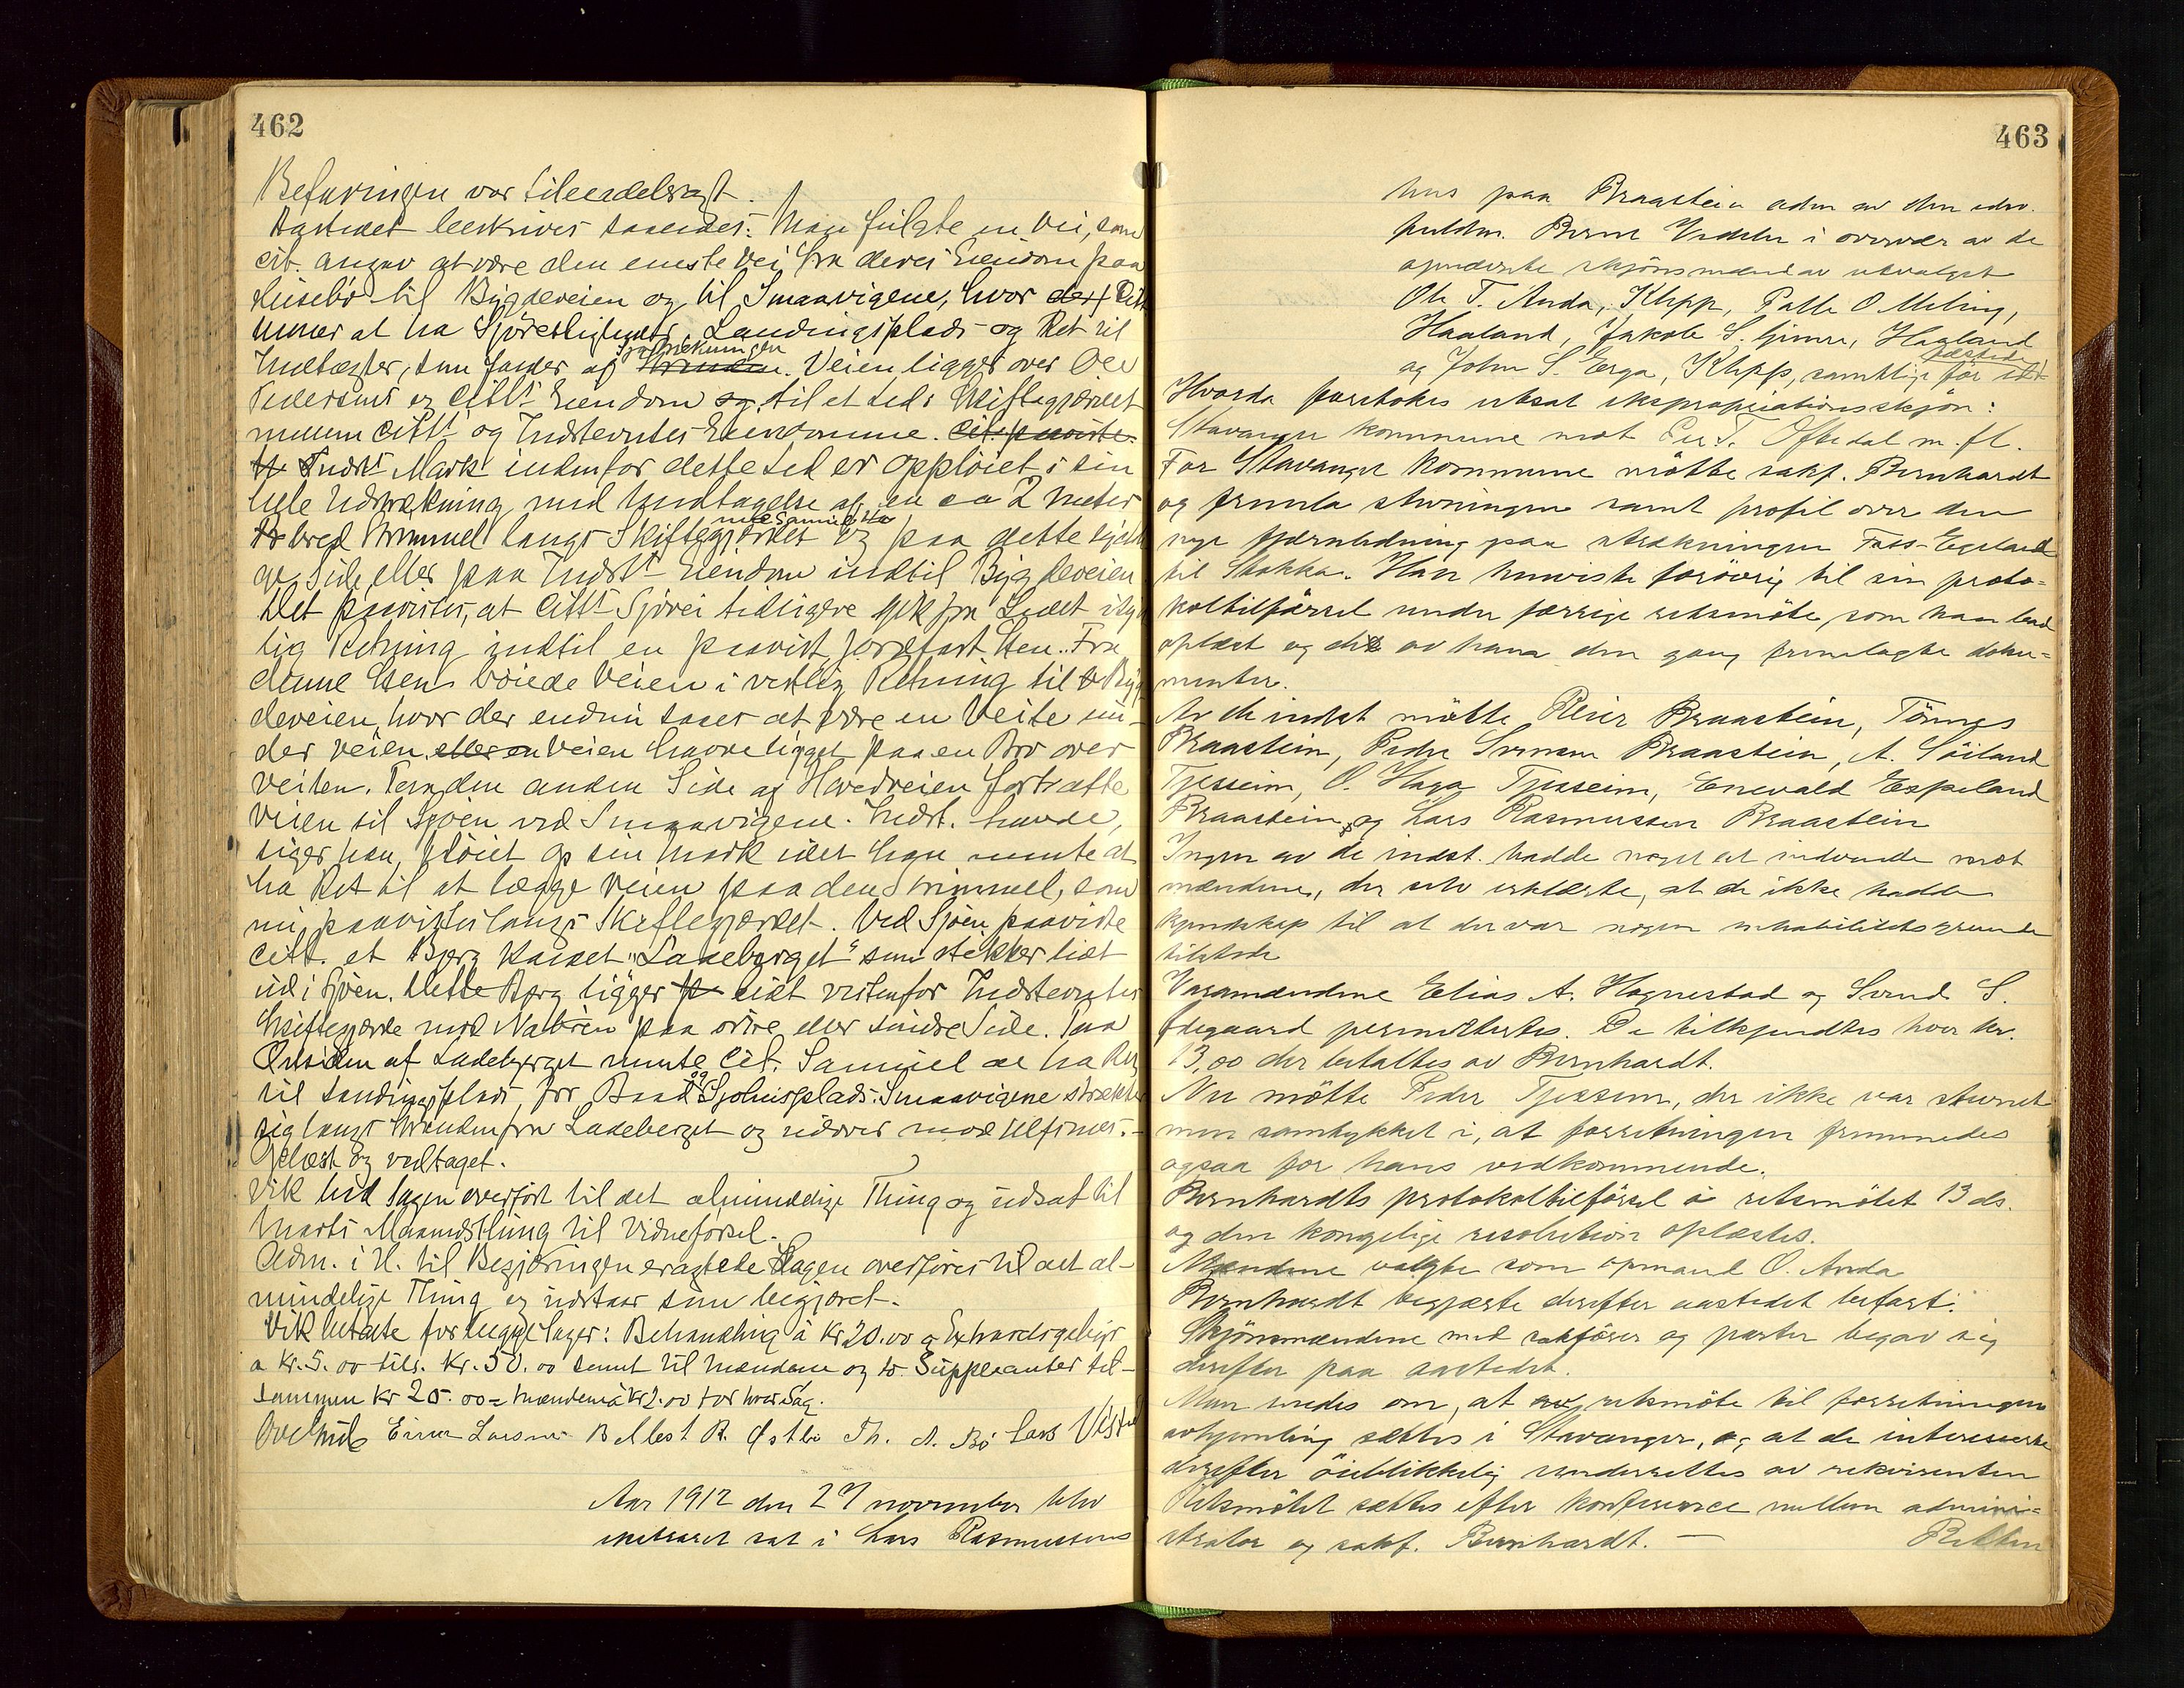 462
Befaringen var tilendebragt.
Aastedet beskrives saaledes: Man fulgte en Vei, som
Cit. angav at være den eneste Vei fra deres Eiendom paa
Husebø til Bygdeveien og til Smaavigene, hvor
mener at ha Landingsplads og Ret til
Indtægter, som falder af Strækningen. Veien ligger over Ole
Pedersens og Citts Eiendom og til et Led i Skiftegjærdet
mellem Citts og Indstevntes Eiendomme. Cit. paaviste
Indsts Mark indenfor dette Led er opploiet i sin
hele Udstrækning med Undtagelse af en ca 2 Meter
bred Strimmel langs Skiftegjærdet med Samuel og paa dette
Side eller paa Indsts Eiendom indtil Bygdeveien
Det paavistes, at Citts Sjøvei tidligere gik fra Ledet i
lig Retning indtil en paavist jordfast Sten. Fra
denne Sten bøiede Veien i vestlig Retning til Byg
deveien, hvor der endnu saaes at være en Veite un-
der veien, eller en Veien havde ligget paa en Bro over
Veiten. Paa den anden Side af Hovedveien fortsatte
Veien til Sjøen ved Smaavigene. Indst. havde,
siger han, pløiet op sin Mark idet han mente at
ha Ret til at lægge Veien paa den Strimmel, som
nu paavistes langs Skiftegjærdet. Ved Sjøen paaviste
Citt. et Berg kaldet "Ladeberget" som stikker lidt
ud i Sjøen. Dette Berg ligger lidt vestenfor Indstevntes
Skiftegjærde med Naboen paa østre eller søndre Side. Paa
Østsiden af Ladeberget mente Cit. Samuel at ha Ret
til Landingsplads for Baad og Sjøhusplads. Smaavigene strækker
sig langs Stranden fra Ladeberget og udover mod
Oplæst og vedtaget.
Vik bad Sagen overført til det almindelige Thing og udsat til
Marts Maanedsthing til Vidneførsel.
Adm. i H. til Begjæringen eragtede Sagen overføres til det al-
mindelige Thing og udstaar som begjæret.
Vik betalte for begge Sager: Behandling à Kr 20.00 og
a Kr. 5.00 tils. Kr. 50.00 samt til Mændene og to Suppleanter til-
sammen Kr 25.00 = Mændene à Kr 2.00 for hver Sag.
Einar Larsen B. Mest R. Østbø Th. A. Bø Lars
Aar 1912 den 27 november blev
ekstraret sat i Lars Rasmussens
463
hus paa Braastein adm av den edsv.
fuldm. Bernt i overvær av de
opnævnte skjønsmænd av utvalget
Ole T. Anda, Klepp, Palle O Meling,
Haaland, Jakob S. Gimre, Haaland
og John S. Erga, Klepp, samtlige før
Hvorda foretokes utsat ekspropriationsskjøn:
Stavanger kommune mot T. Oftedal m. fl.
For Stavanger Kommune møtte sakf. Bernhardt
og fremla stevningen samt profil over den
nye fjernledning paa strækningen Foss-Eigeland
til Stokka. Han henviste forøvrig til sin proto-
koltilførsel under forrige retsmøte, som han bad
oplæst og de av ham den gang fremlagte doku-
menter.
Av de indst møtte Peder Braastein, Tønnes
Braastein, Peder Svensen Braastein, A. Söiland
Tjessem, O. Haga Tjessem, Enevald Espeland
Braastein og Lars Rasmussen Braastein
Ingen av de indst. hadde noget at indvende mot
mændene, der selv erklærte, at de ikke hadde
kjendskap til at der var nogen inhabilitetsgrunde
tilstede
Varamændene Elias A. Hognestad og Svend S.
Ødegaard permitteretes. De tilkjendtes hver kr.
13,00 der betaltes av Bernhardt.
Nu møtte Peder Tjessem, der ikke var stevnet
men samtykket i, at forretningen fremmedes
ogsaa for hans vedkommende.
Bernhardts protokoltilførsel i retsmøtet 13 ds.
og den kongelige resolution oplæstes.
Mændene valgte som opmand O. Anda
Bernhardt begjærte derefter aastedet befart.
Skjønsmændene med sakfører og parter begav sig
derefter paa aastedet.
Man enedes om, at retsmøte til forretningens
avhjemling sættes i Stavanger, og at de interesserte
derefter øieblikkelig underrettes av rekvirenten
Retsmøtet sættes efter konferance mellem admini-
strator og sakf. Bernhardt. — Retten